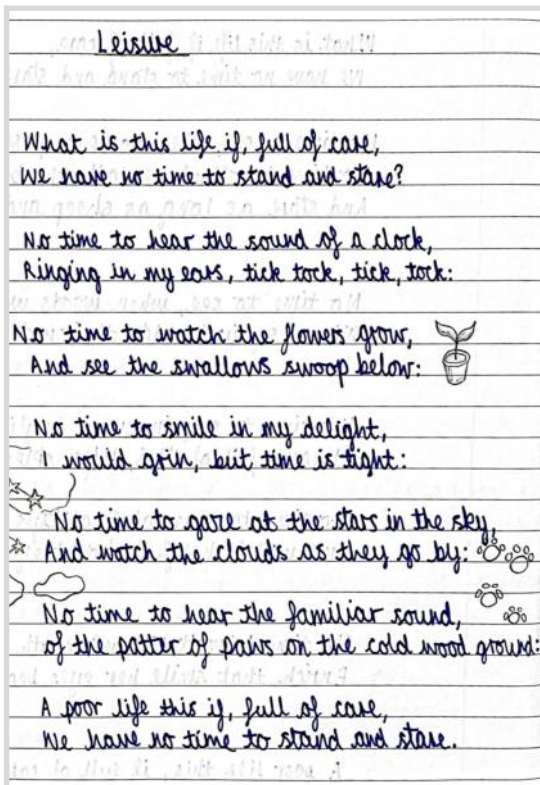 Leisure
What is this life if, full of care,
We have no time to stand and stare?
No time to hear the sound of a clock,
Ringing in my ears, tick tock, tick, tock:
No time to watch the flowers grow,
And see the swallows swoop below:
No time to smile in my delight,
I would grin, but time is tight:
No time to gaze at the stars in the sky,
And watch the clouds as they go by:
No time to hear the familiar sound,
of the patter of paws on the cold wood ground:
A poor life this if, full of care,
We have no time to stand and stare.